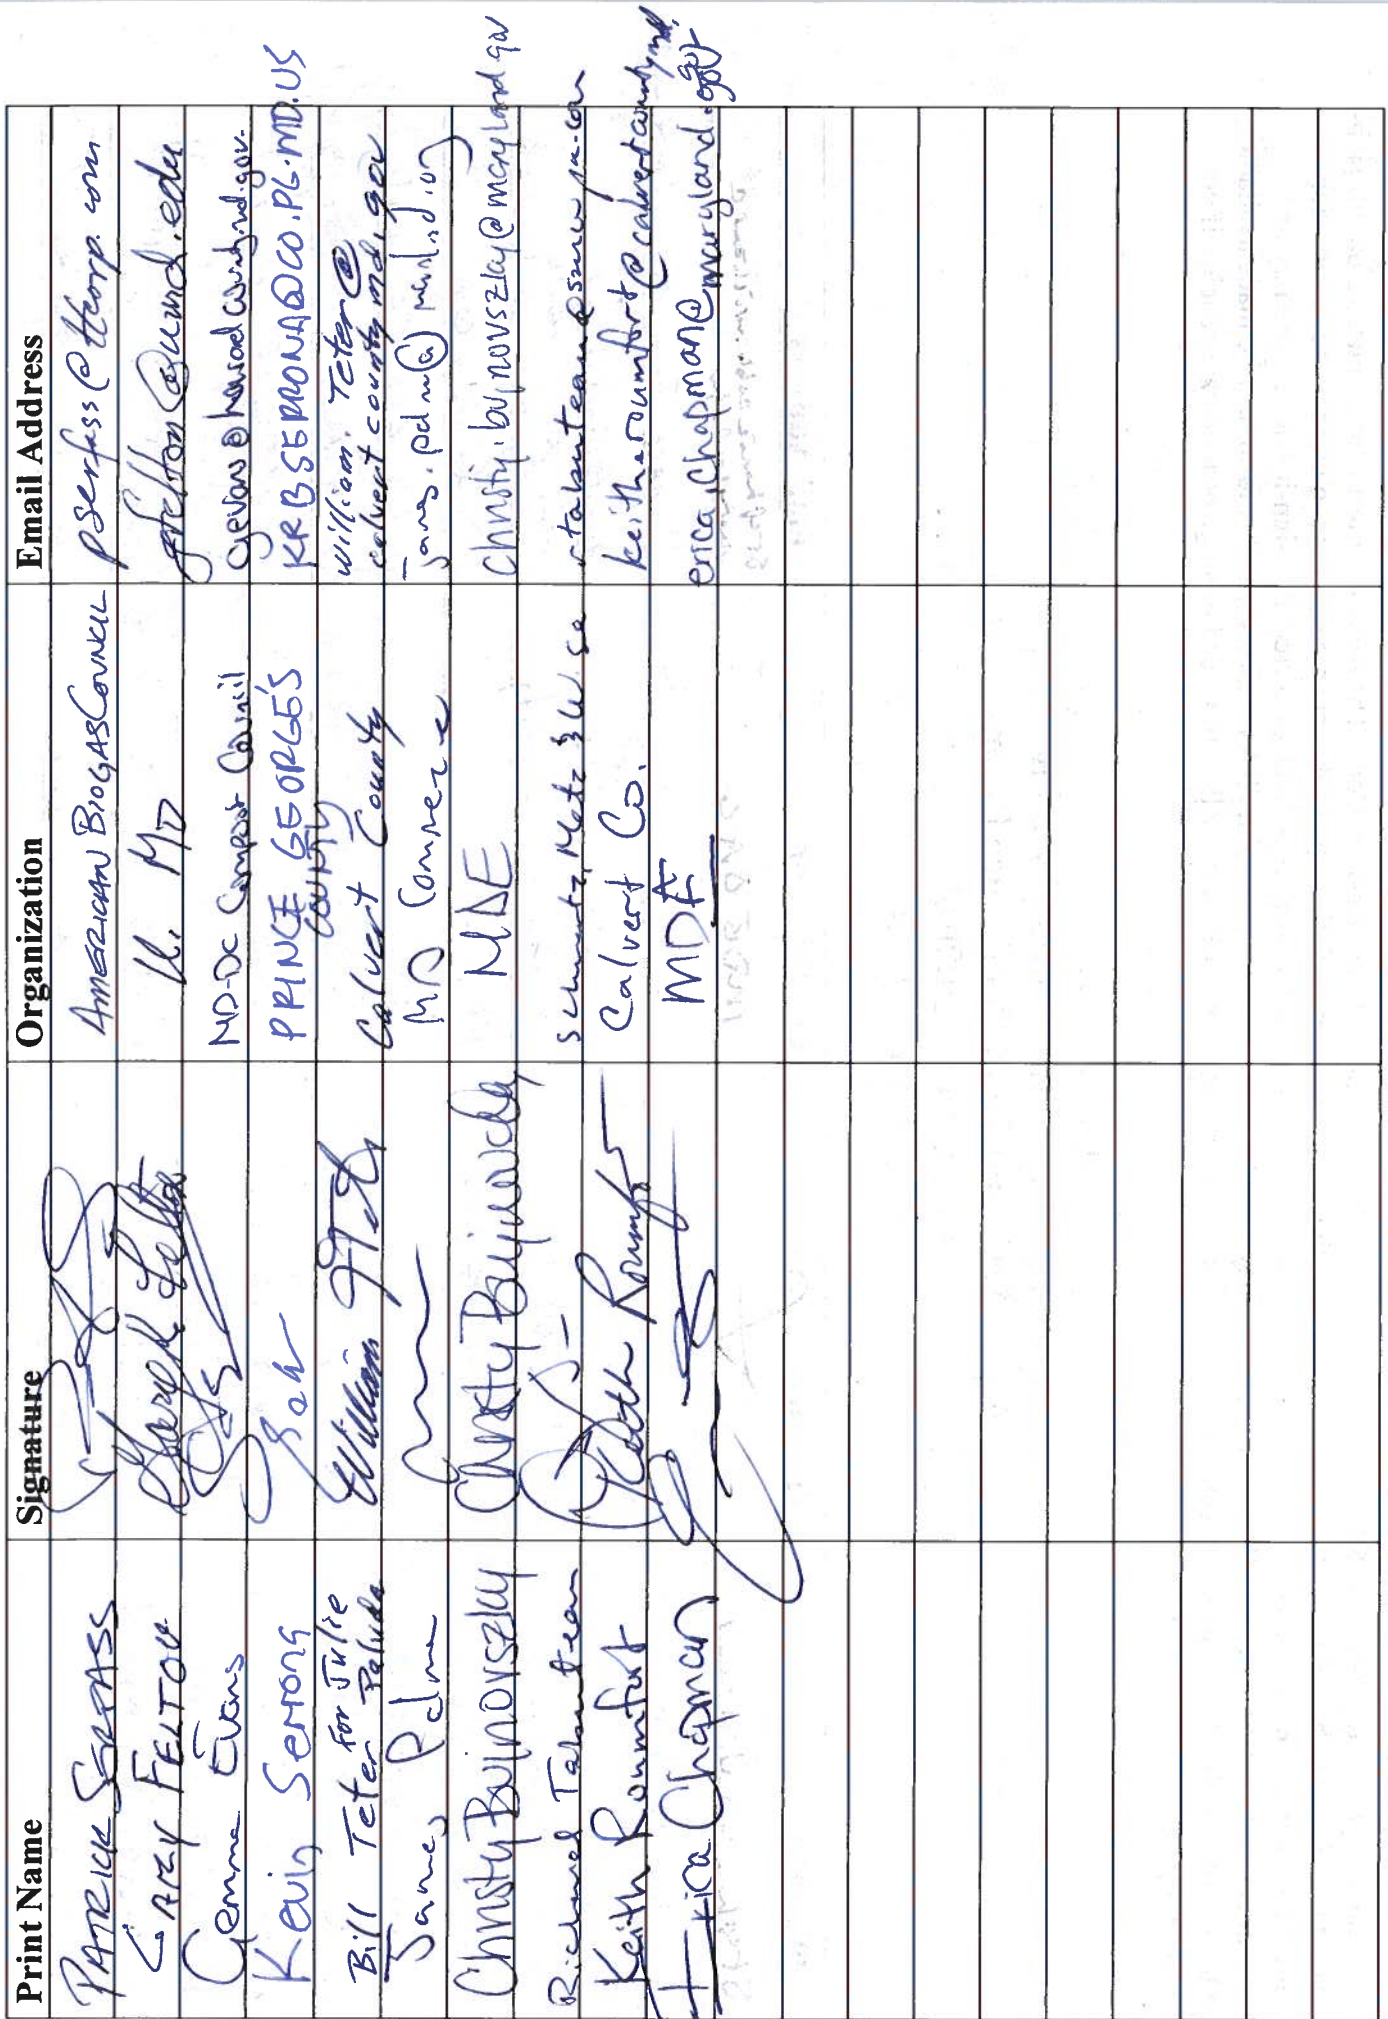 Print Name Signature Organization Email Address
PATRICK SERFASS AMERICAN BIOGAS COUNCIL pserfass@ttcorp.com
GARY FELTON Gary K Felton U. MD gfelton@umd.edu
Gemma Evans MD-DC Compost Council gevans@howardcountymd.gov
Kevin Serrona PRINCE GEORGE'S COUNTY KRBSERRONA@CO.PG.MD.US
Bill Teter For Julie Paluda William Teter Calvert County William.Teter@calvertcountymd.gov
James Palma MD Commerce
Christy Bujnovszky Christy Bujnovszky MDE christy.bujnovszky@maryland.gov
Richard Tabuteau Schwartz, Metz
Keith Roumfort Keith Roumfort Calvert Co. keith.roumfort@calvertcountymd.gov
Erica Chapman MDE erica.chapman@maryland.gov